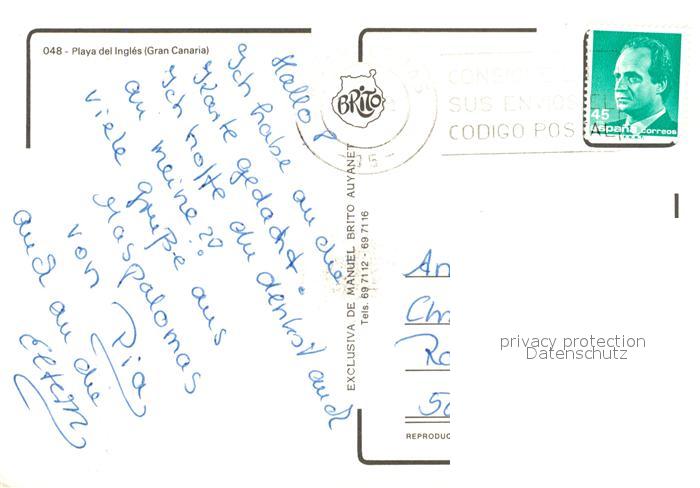 048 - Playa del Inglés (Gran Canaria)
Hallo
Ich habe an die
Karte gedacht.
Ich hoffe du denkst auch
an meine??
viele grüße aus
Maspalomas
von Pia
auch an die
Eltern
BRITO
EXCLUSIVA DE MANUEL BRITO AUYANET
Tels. 69 7112 - 69 7116
CONS
SUS EN
CODIGO POS
45
España correos
An
Ch
privacy protection
Datenschutz
REPRODUC